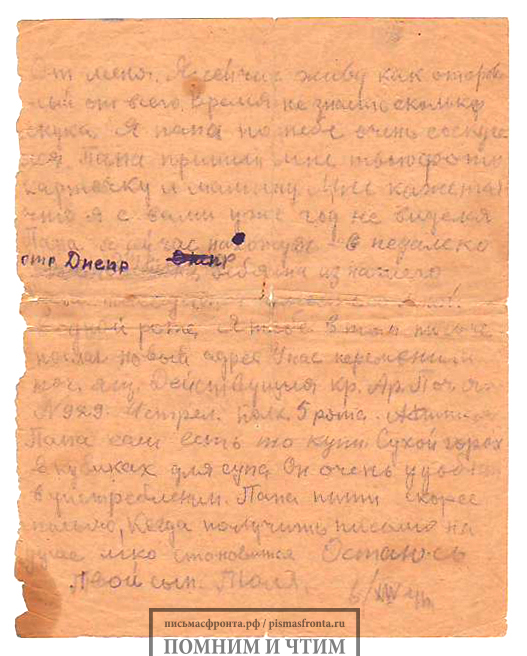 От меня. Я сейчас живу как оторван
ный от всего, время не знаешь сколько
скука. Я папа по тебе очень соскучи
лся. Папа пришли мне твою фото
карточку и мамину Мне кажется
что я с вами уже год не виделся
Папа я сейчас нахожусь в недалеко
отр Днепр Днепр
ребята из нашего
одной роте. Я тебе в том письме
послал новый адрес У нас переменили
поч. ящ. Действущия кр. Ар. Поч
N 989. Истрел. полк. 5 рота.
Папа если есть то купи Сухой горох
в кубиках для супа Он очень удобен
в употреблении. Папа пиши скорее
письмо, Когда получить письмо на
душе легко становится Остаюсь
Твой сын. Толя.
письмасфронта.рф / pismasfronta.ru
ПОМНИМ И ЧТИМ